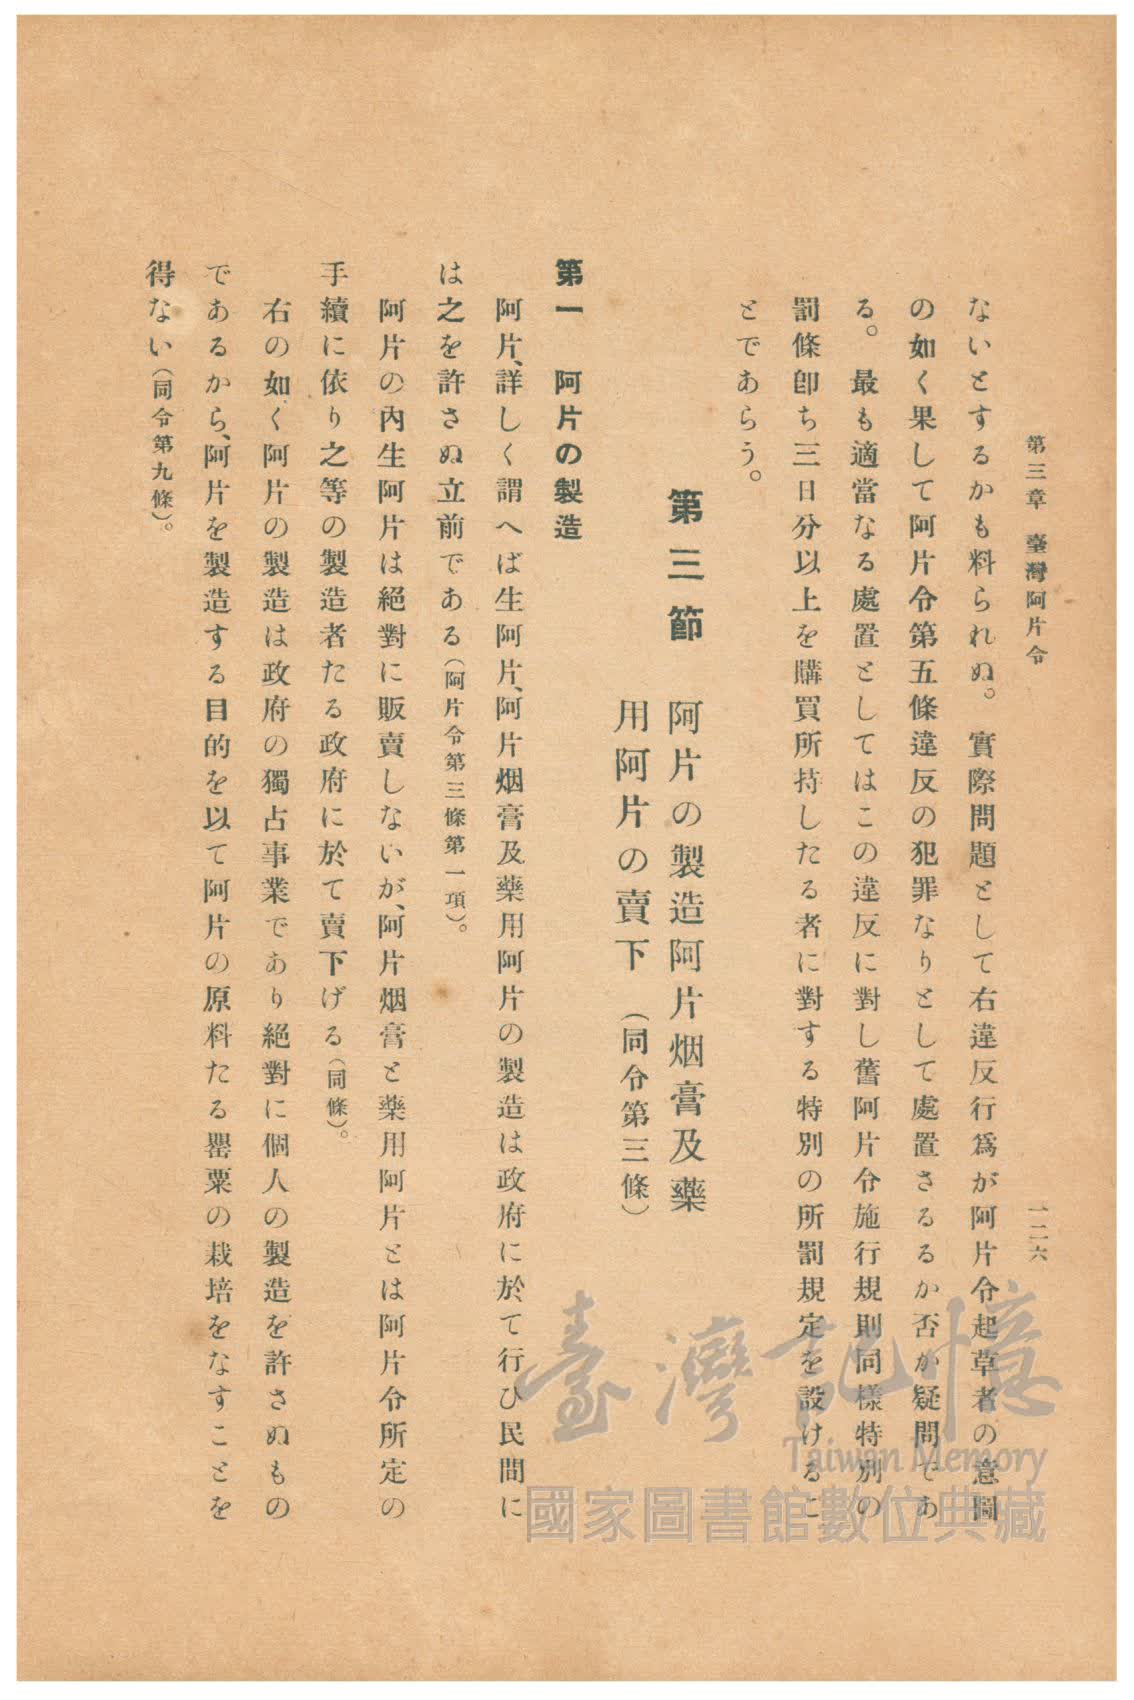 第三章　臺灣阿片令　一二六
ないとするかも料られぬ。實際問題として右違反行爲が阿片令起草者の意圖
の如く果して阿片令第五條違反の犯罪なりとして處置さるるか否か疑問であ
る。最も適當なる處置としてはこの違反に對し舊阿片令施行規則同樣特別の
罰條卽ち三日分以上を購買所持したる者に對する特別の所罰規定を設けるこ
とであらう。
第三節　阿片の製造阿片烟膏及藥
用阿片の賣下（同令第三條）
第一　阿片の製造
阿片、詳しく謂へば生阿片、阿片烟膏及藥用阿片の製造は政府に於て行ひ民間に
は之を許さぬ立前である（阿片令第三條第一項）。
阿片の內生阿片は絕對に販賣しないが、阿片烟膏と藥用阿片とは阿片令所定の
手續に依り之等の製造者たる政府に於て賣下げる（同條）。
右の如く阿片の製造は政府の獨占事業であり絕對に個人の製造を許さぬもの
であるから、阿片を製造する目的を以て阿片の原料たる罌粟の栽培をなすことを
得ない（同令第九條）。
臺灣記憶
Taiwan Memory
國家圖書館數位典藏